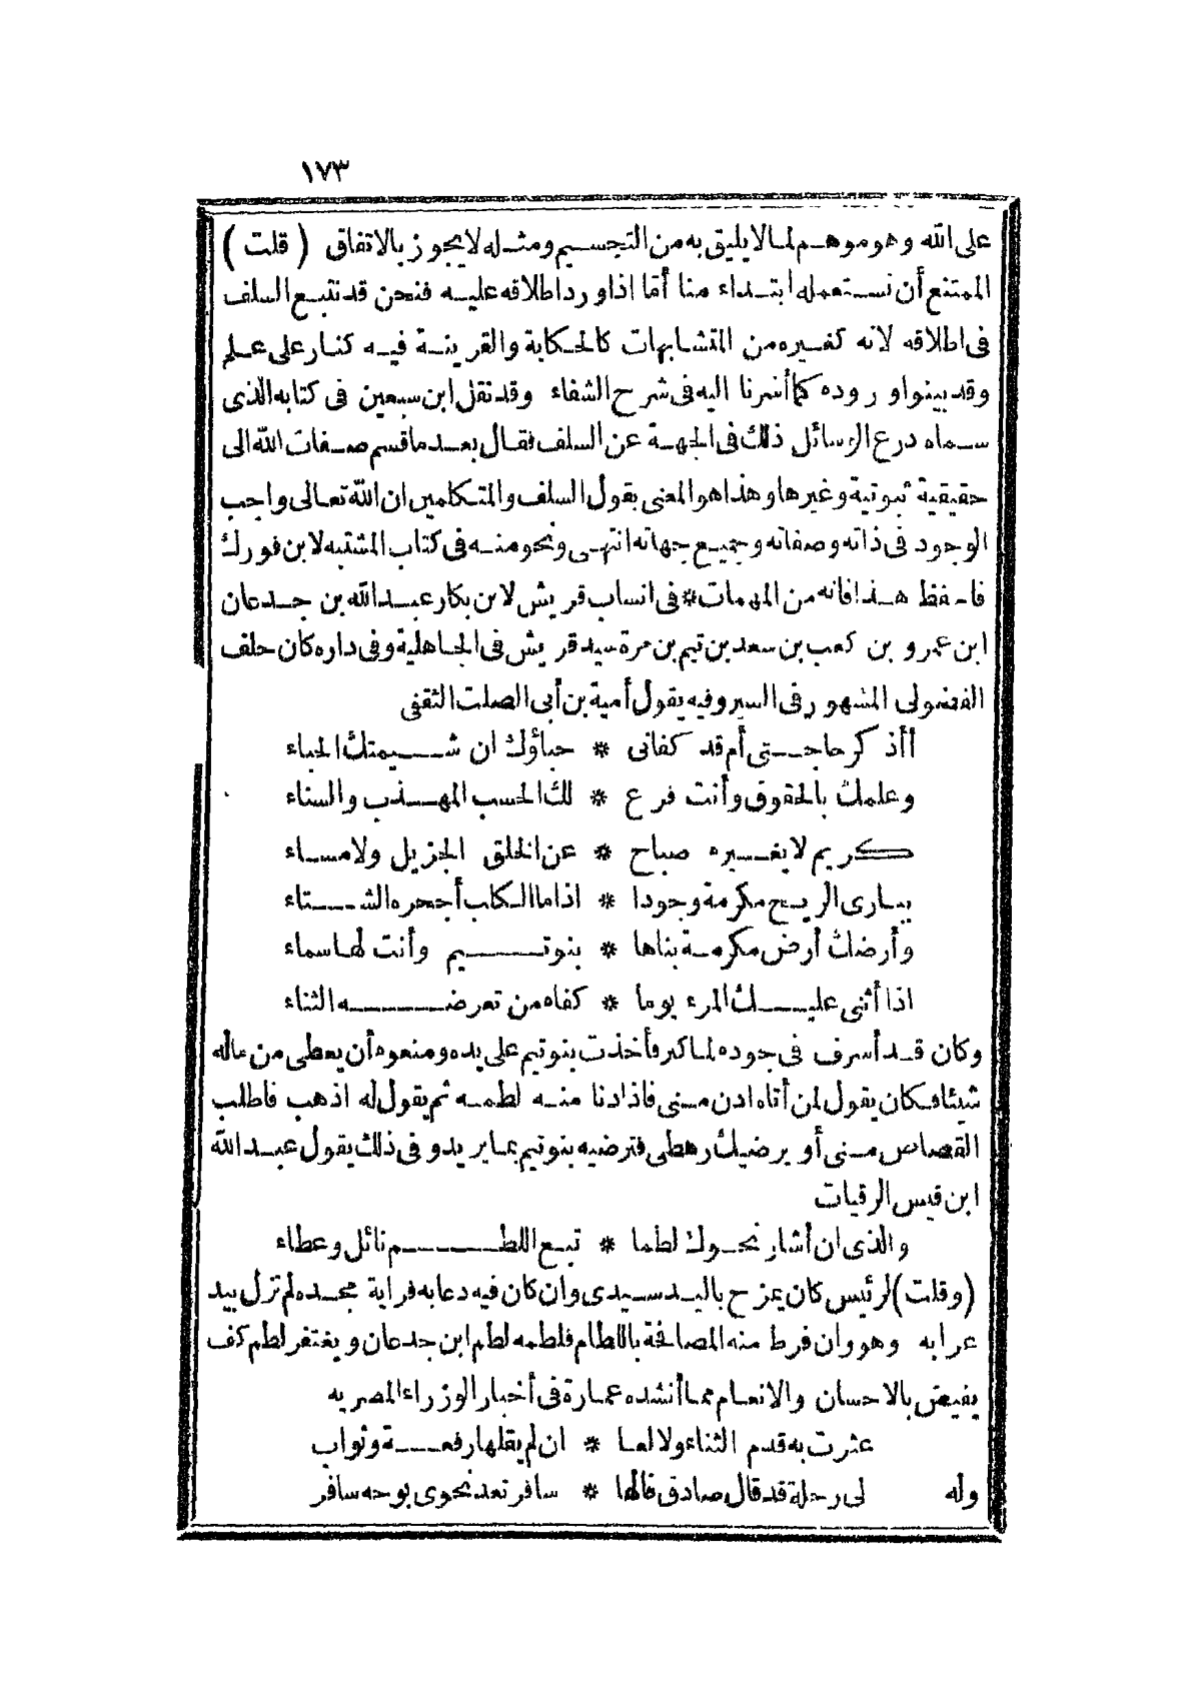 ١٧٣
على الله وهو موهم لما لا يليق به من التجسيم ومثله لا يجوز بالاتفاق ( قلت )
الممتنع أن نستعمله ابتداء منا أما اذا ورد اطلاقه عليه فنحن قد نتبع السلف
فى اطلاقه لانه كغيره من المتشابهات كالحكاية والقرينة فيه كنار على علم
وقد بينوا وروده كما أشرنا اليه فى شرح الشفاء وقد نقل ابن سبعين فى كتابه الذى
سماه درع الرسائل ذلك فى الجهة عن السلف فقال بعد ما قسم صفات الله الى
حقيقية ثبوتية وغيرها وهذا هو المعنى بقول السلف والمتكلمين ان الله تعالى واجب
الوجود فى ذاته وصفاته وجميع جهاته انتهى ونحو منه فى كتاب المشتبه لابن فورك
فاحفظ هذا فانه من المهمات * فى انساب قريش لابن بكار عبد الله بن جدعان
ابن عمرو بن كعب بن سعد بن تيم بن مرة سيد قريش فى الجاهلية وفى داره كان حلف
الفضولى المشهور فى السير وفيه يقول أمية بن أبى الصلت الثقفى
أأذكر حاجتى أم قد كفانى * حباؤك ان شيمتك الحباء
وعلمك بالحقوق وأنت فرع * لك الحسب المهذب والسناء
كريم لا يغيره صباح * عن الخلق الجزيل ولا مساء
يبارى الريح مكرمة وجودا * اذا ما الكلب أجحره الشتاء
وأرضك أرض مكرمة بناها * بنو تيم وأنت لها سماء
اذا أثنى عليك المرء يوما * كفاه من تعرضه الثناء
وكان قد أسرف فى جوده لما كبر فأخذت بنو تيم على يده ومنعوه أن يعطى من ماله
شيئا فكان يقول لمن أتاه ادن منى فاذا دنا منه لطمه ثم يقول له اذهب فاطلب
القصاص منى أو يرضيك رهطى فترضيه بنو تيم بما يريد وفى ذلك يقول عبد الله
ابن قيس الرقيات
والذى ان أشار نحوك لطما * تبع اللطم نائل وعطاء
(وقلت) لرئيس كان يمزح باليد سيدى وان كان فيه دعابه فراية مجده لم تزل بيد
عرابه وهو وان فرط منه المصافحة باللطام فلطمه لطم ابن جدعان ويغتفر لطم كف
يفيض بالاحسان والانعام مما أنشده عمارة فى أخبار الوزراء المصريه
عثرت به قدم الثناء ولا لعا * ان لم يقلها رفعة وثواب
وله لى رحلة قد قال صادق فالها * سافر تعد نحوى بوجه سافر